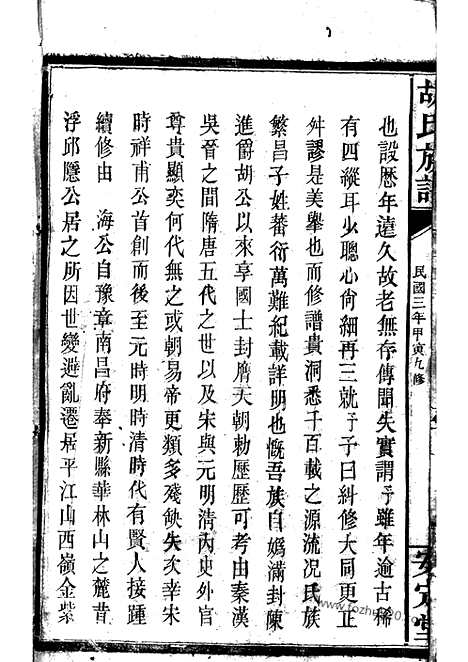 胡氏族譜
民國三年甲寅九修
安定堂
也設歷年遠久故老無存傳聞失實謂予雖年逾古稀
有四縱耳少聰心尙細再三就予予曰糾修大同更正
舛謬是美舉也而修譜貴洞悉千百載之源流况氏族
繁昌子姓蕃衍萬難紀載詳明也慨吾族自嬀滿封陳
進爵胡公以來享國士封膺天朝勅歷歷可考由秦漢
吳晉之間隋唐五代之世以及宋與元明清內史外官
尊貴顯奕何代無之或朝易帝更類多殘缺失次幸宋
時祥甫公首創而後至元時明時清時代有賢人接踵
續修由 海公自豫章南昌府奉新縣華林山之麓昔
浮邱隱公居之所因世變避亂遷居平江山西嶺金紫